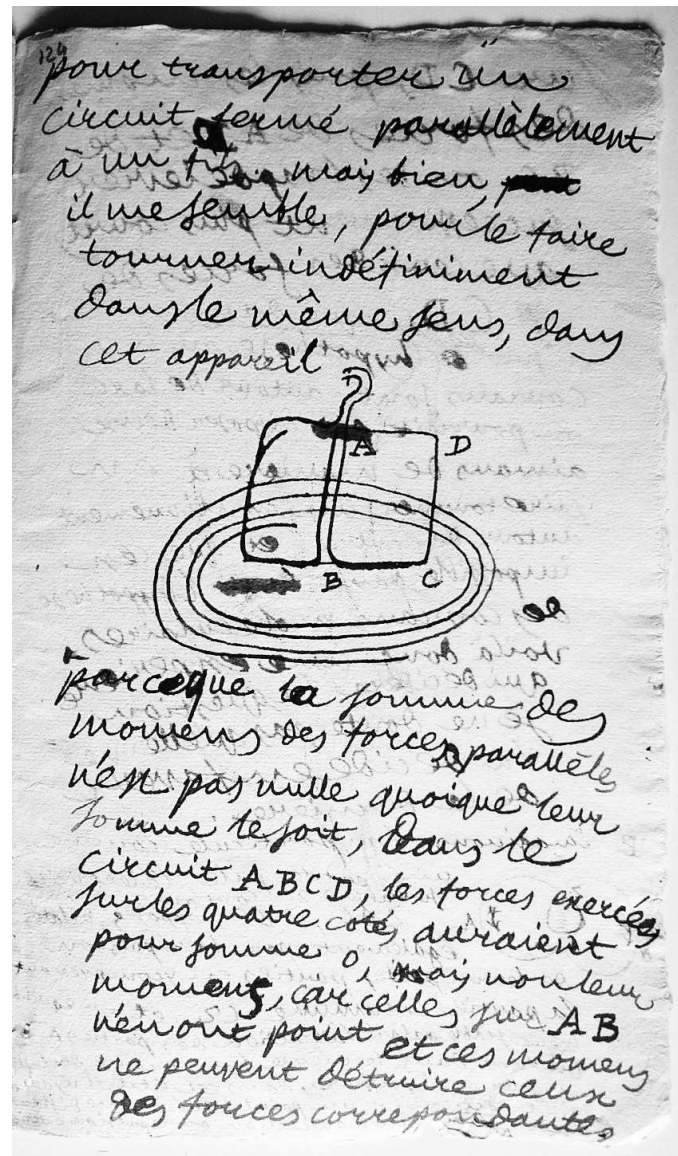 124
pour transporter un
circuit fermé parallèlement
à un fil, mais bien,
il me semble, pour le faire
tourner indéfiniment
dans le même sens, dans
cet appareil
A
D
B
C
parceque la somme des
momens des forces parallèles
n'est pas nulle quoique leur
somme le soit, Dans le
circuit ABCD, les forces exercées
sur les quatre cotés auraient
pour somme 0, mais non leur
momens, car celles sur AB
n'en ont point et ces momens
ne peuvent détruire ceux
des forces correpondantes